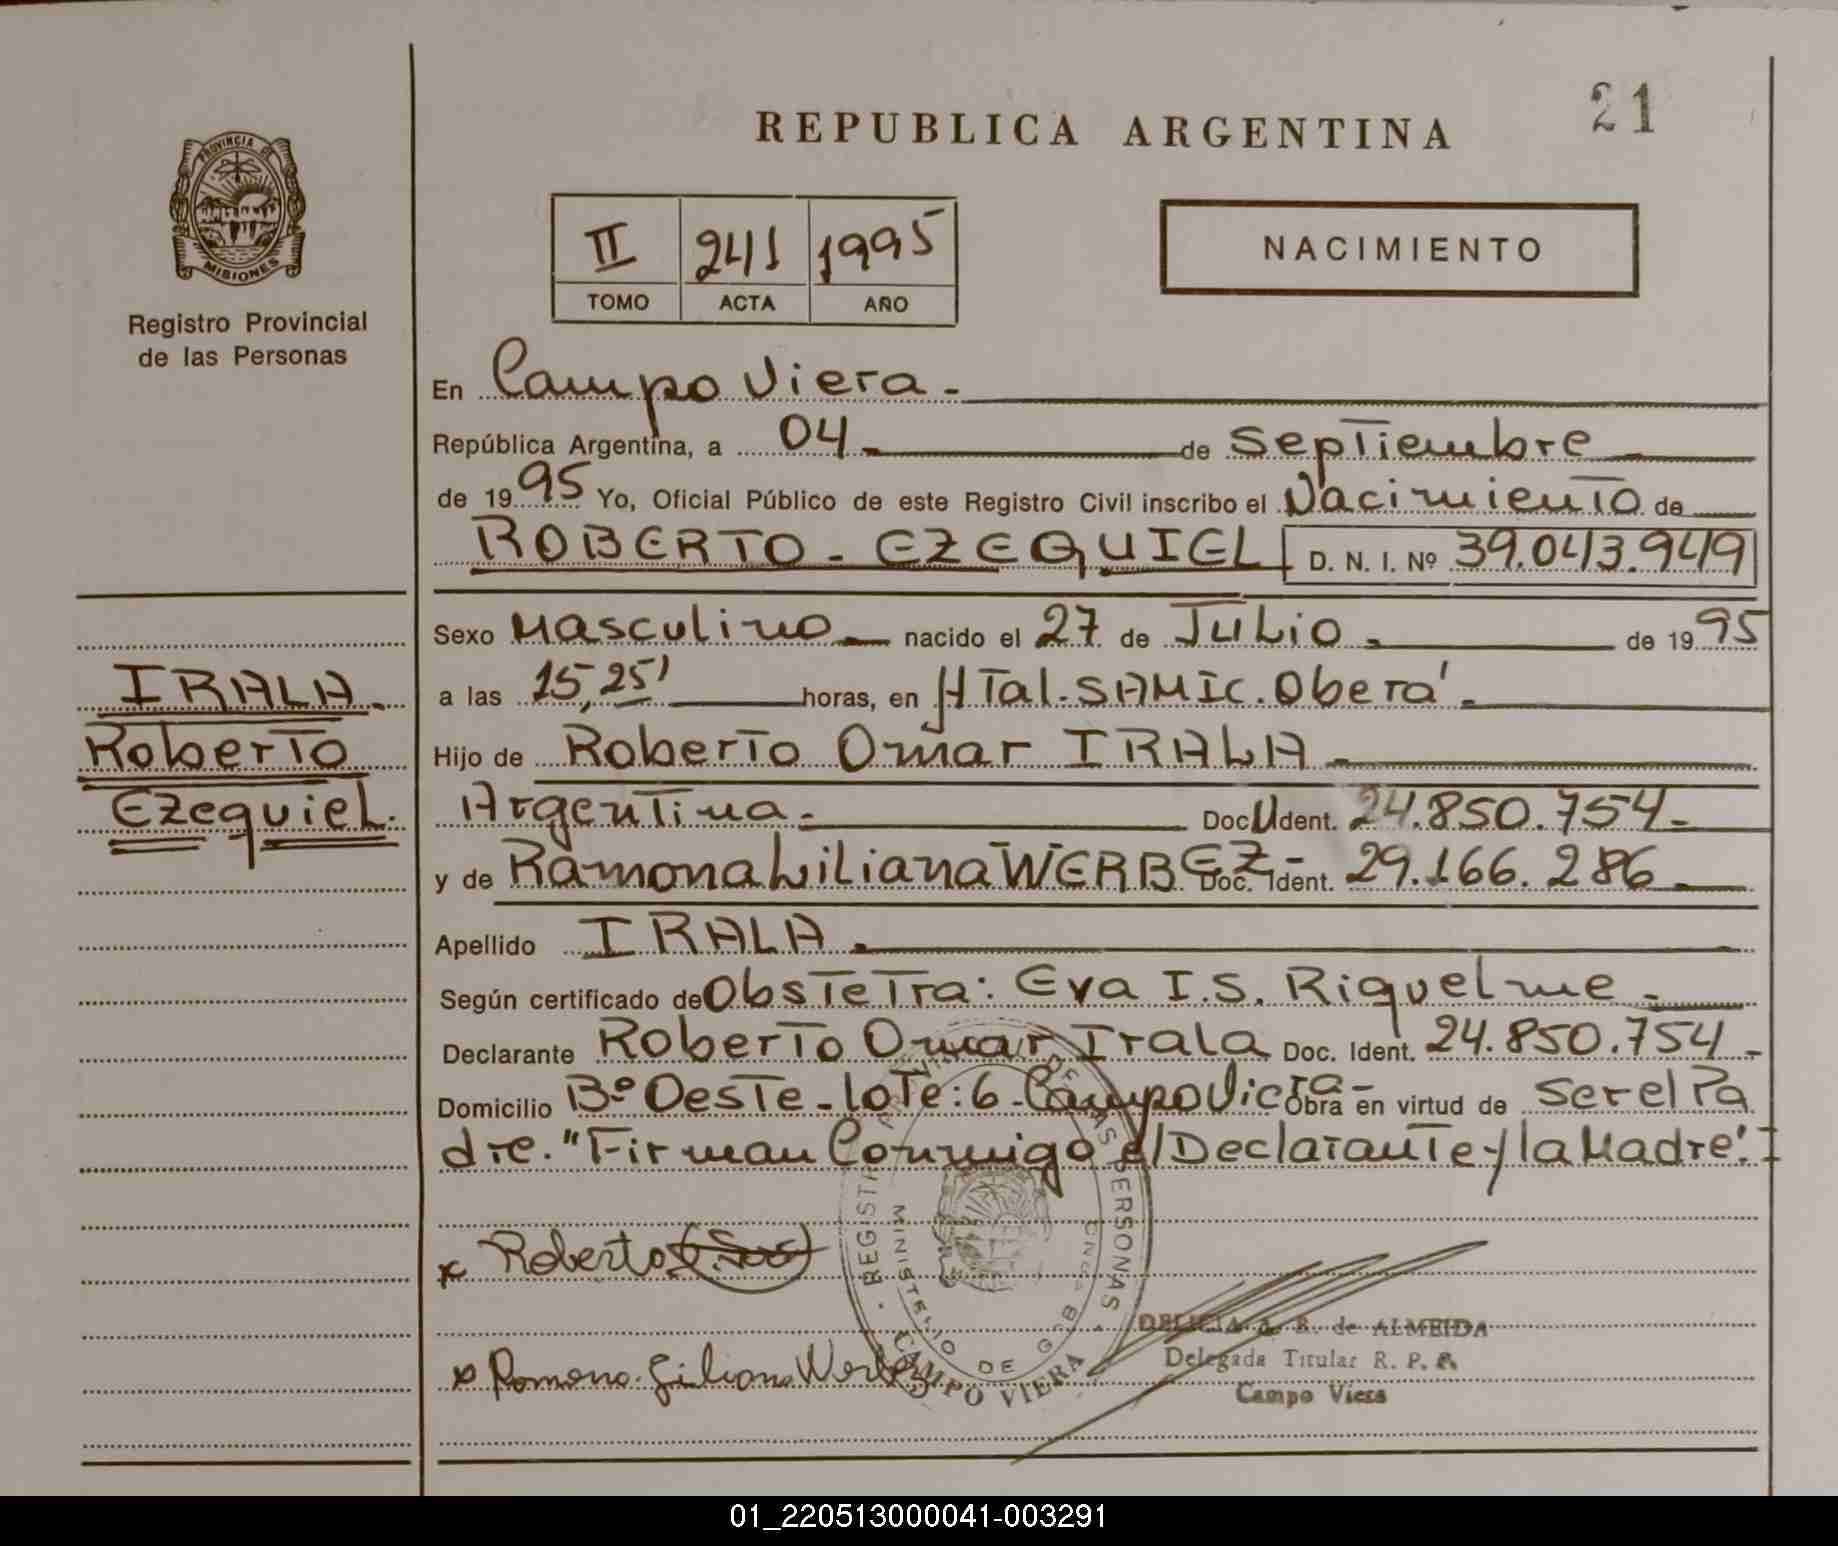 REPUBLICA ARGENTINA
21
PROVINCIA DE
MISIONES
Registro Provincial
de las Personas
II 241 1995
TOMO ACTA AÑO
NACIMIENTO
En Campo Viera.-
República Argentina, a 04.- de Septiembre
de 1995 Yo, Oficial Público de este Registro Civil inscribo el Nacimiento de
ROBERTO - EZEQUIEL D. N. I. Nº 39.043.949
Sexo Masculino.- nacido el 27 de Julio.- de 1995
a las 15,25' horas, en HTal. SAMIC. Oberá.-
Hijo de Roberto Omar IRALA.-
Argentina.- Doc. U Ident. 24.850.754.-
y de Ramona Liliana WERBEZ.- Doc. Ident. 29.166.286.-
Apellido IRALA.-
Según certificado de Obstetra: Eva I.S. Riquelme.-
Declarante Roberto Omar Irala Doc. Ident. 24.850.754.-
Domicilio Bº Oeste - lote: 6 - Campo Viera - Obra en virtud de ser el Pa
dre. "Firman Conmigo el Declarante y la Madre".-
IRALA.
Roberto
Ezequiel.
x Roberto
x Ramona Liliana Werbez
MINISTERIO DE GOB
CAMPO VIERA
DELICIA A. B. de ALMEIDA
Delegada Titular R. P. P.
Campo Viera
01_220513000041-003291